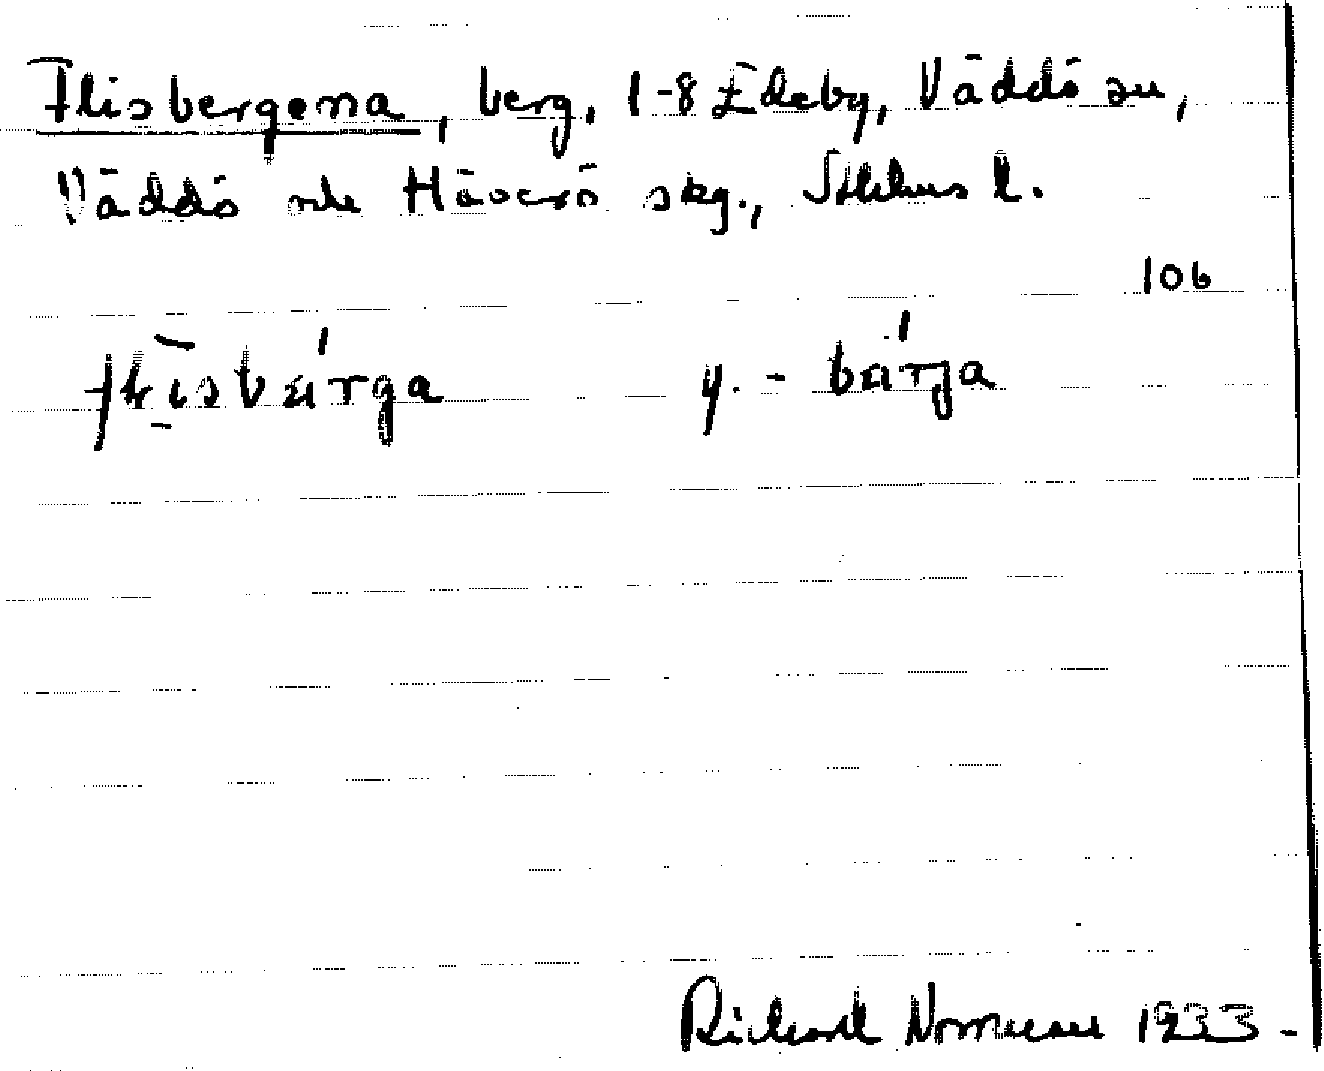 Flisbergena, berg, 1-8 Edeby, Väddö sn,
Väddö och Häverö skg., Sthlms l.
106
flisbärga y. - bärja
Richard Norrman 1933 -